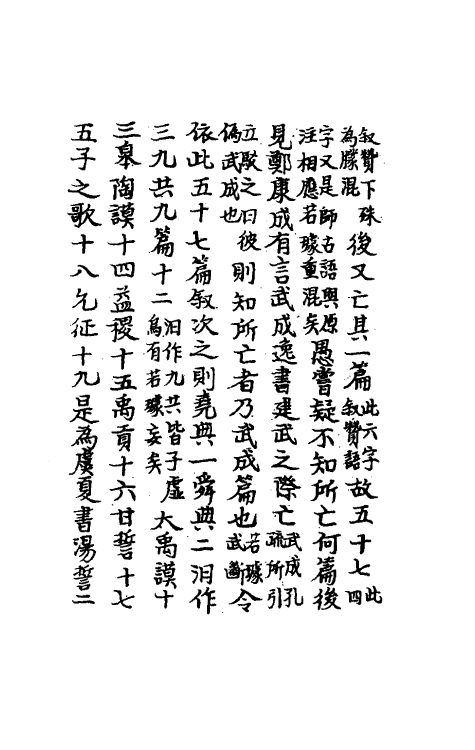 叙贊下殊為朦混後又亡其一篇此六字叙贊語故五十七此四
字又是師古語與原注相應若璩重混矣愚嘗疑不知所亡何篇後
見鄭康成有言武成逸書建武之際亡武成孔疏所引
立駁之曰彼偽武成也則知所亡者乃武成篇也若璩武斷令
依此五十七篇叙次之則堯典一舜典二汨作
三九共九篇十二汨作九共皆子虛烏有若璩妄矣大禹謨十
三皋陶謨十四益稷十五禹貢十六甘誓十七
五子之歌十八乞征十九是為虞夏書湯誓二